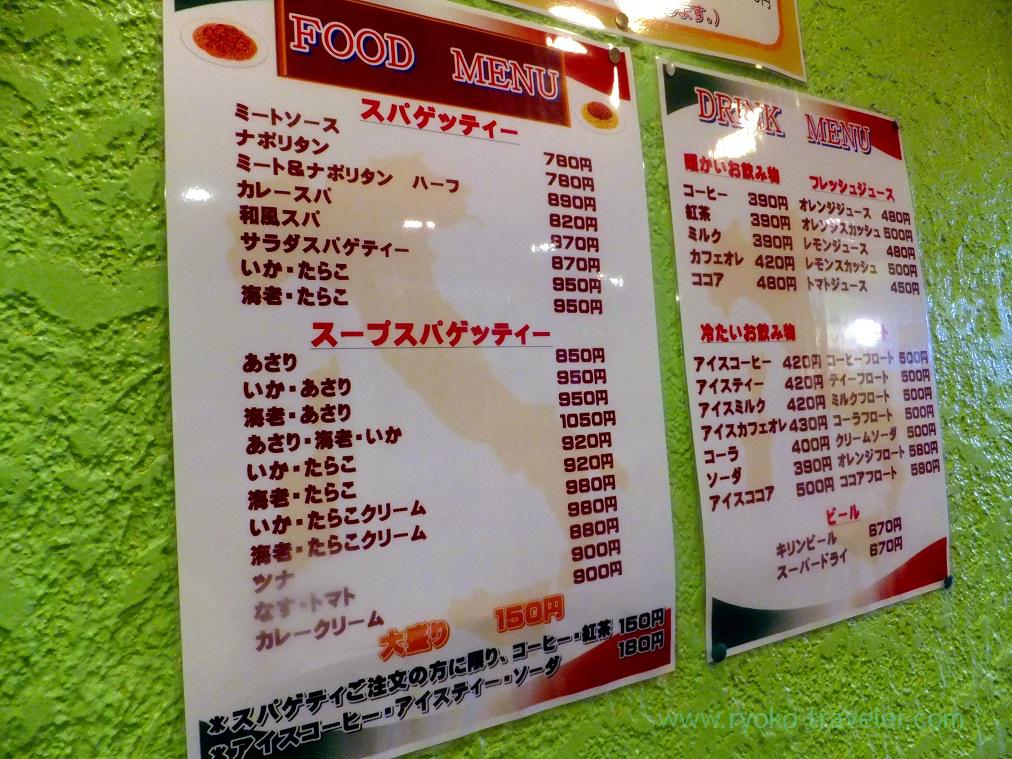 ます。)
FOOD MENU
スパゲッティー
ミートソース 780円
ナポリタン 780円
ミート&ナポリタン ハーフ 890円
カレースパ 820円
和風スパ 870円
サラダスパゲティー 870円
いか・たらこ 950円
海老・たらこ 950円
スープスパゲッティー
あさり 850円
いか・あさり 950円
海老・あさり 950円
あさり・海老・いか 1050円
いか・たらこ 920円
海老・たらこ 920円
いか・たらこクリーム 980円
海老・たらこクリーム 980円
ツナ 880円
なす・トマト 900円
カレークリーム 900円
大盛り 150円
※スパゲティご注文の方に限り、コーヒー・紅茶 150円
※アイスコーヒー・アイスティー・ソーダ 180円
DRINK MENU
暖かいお飲み物
コーヒー 390円
紅茶 390円
ミルク 390円
カフェオレ 420円
ココア 480円
フレッシュジュース
オレンジジュース 480円
オレンジスカッシュ 500円
レモンジュース 480円
レモンスカッシュ 500円
トマトジュース 450円
冷たいお飲み物
アイスコーヒー 420円
アイスティー 420円
アイスミルク 420円
アイスカフェオレ 430円
コーラ 400円
ソーダ 390円
アイスココア 500円
コーヒーフロート 500円
ティーフロート 500円
ミルクフロート 500円
コーラフロート 500円
クリームソーダ 500円
オレンジフロート 580円
ココアフロート 580円
ビール
キリンビール 670円
スーパードライ 670円
www.ryoko-traveler.com